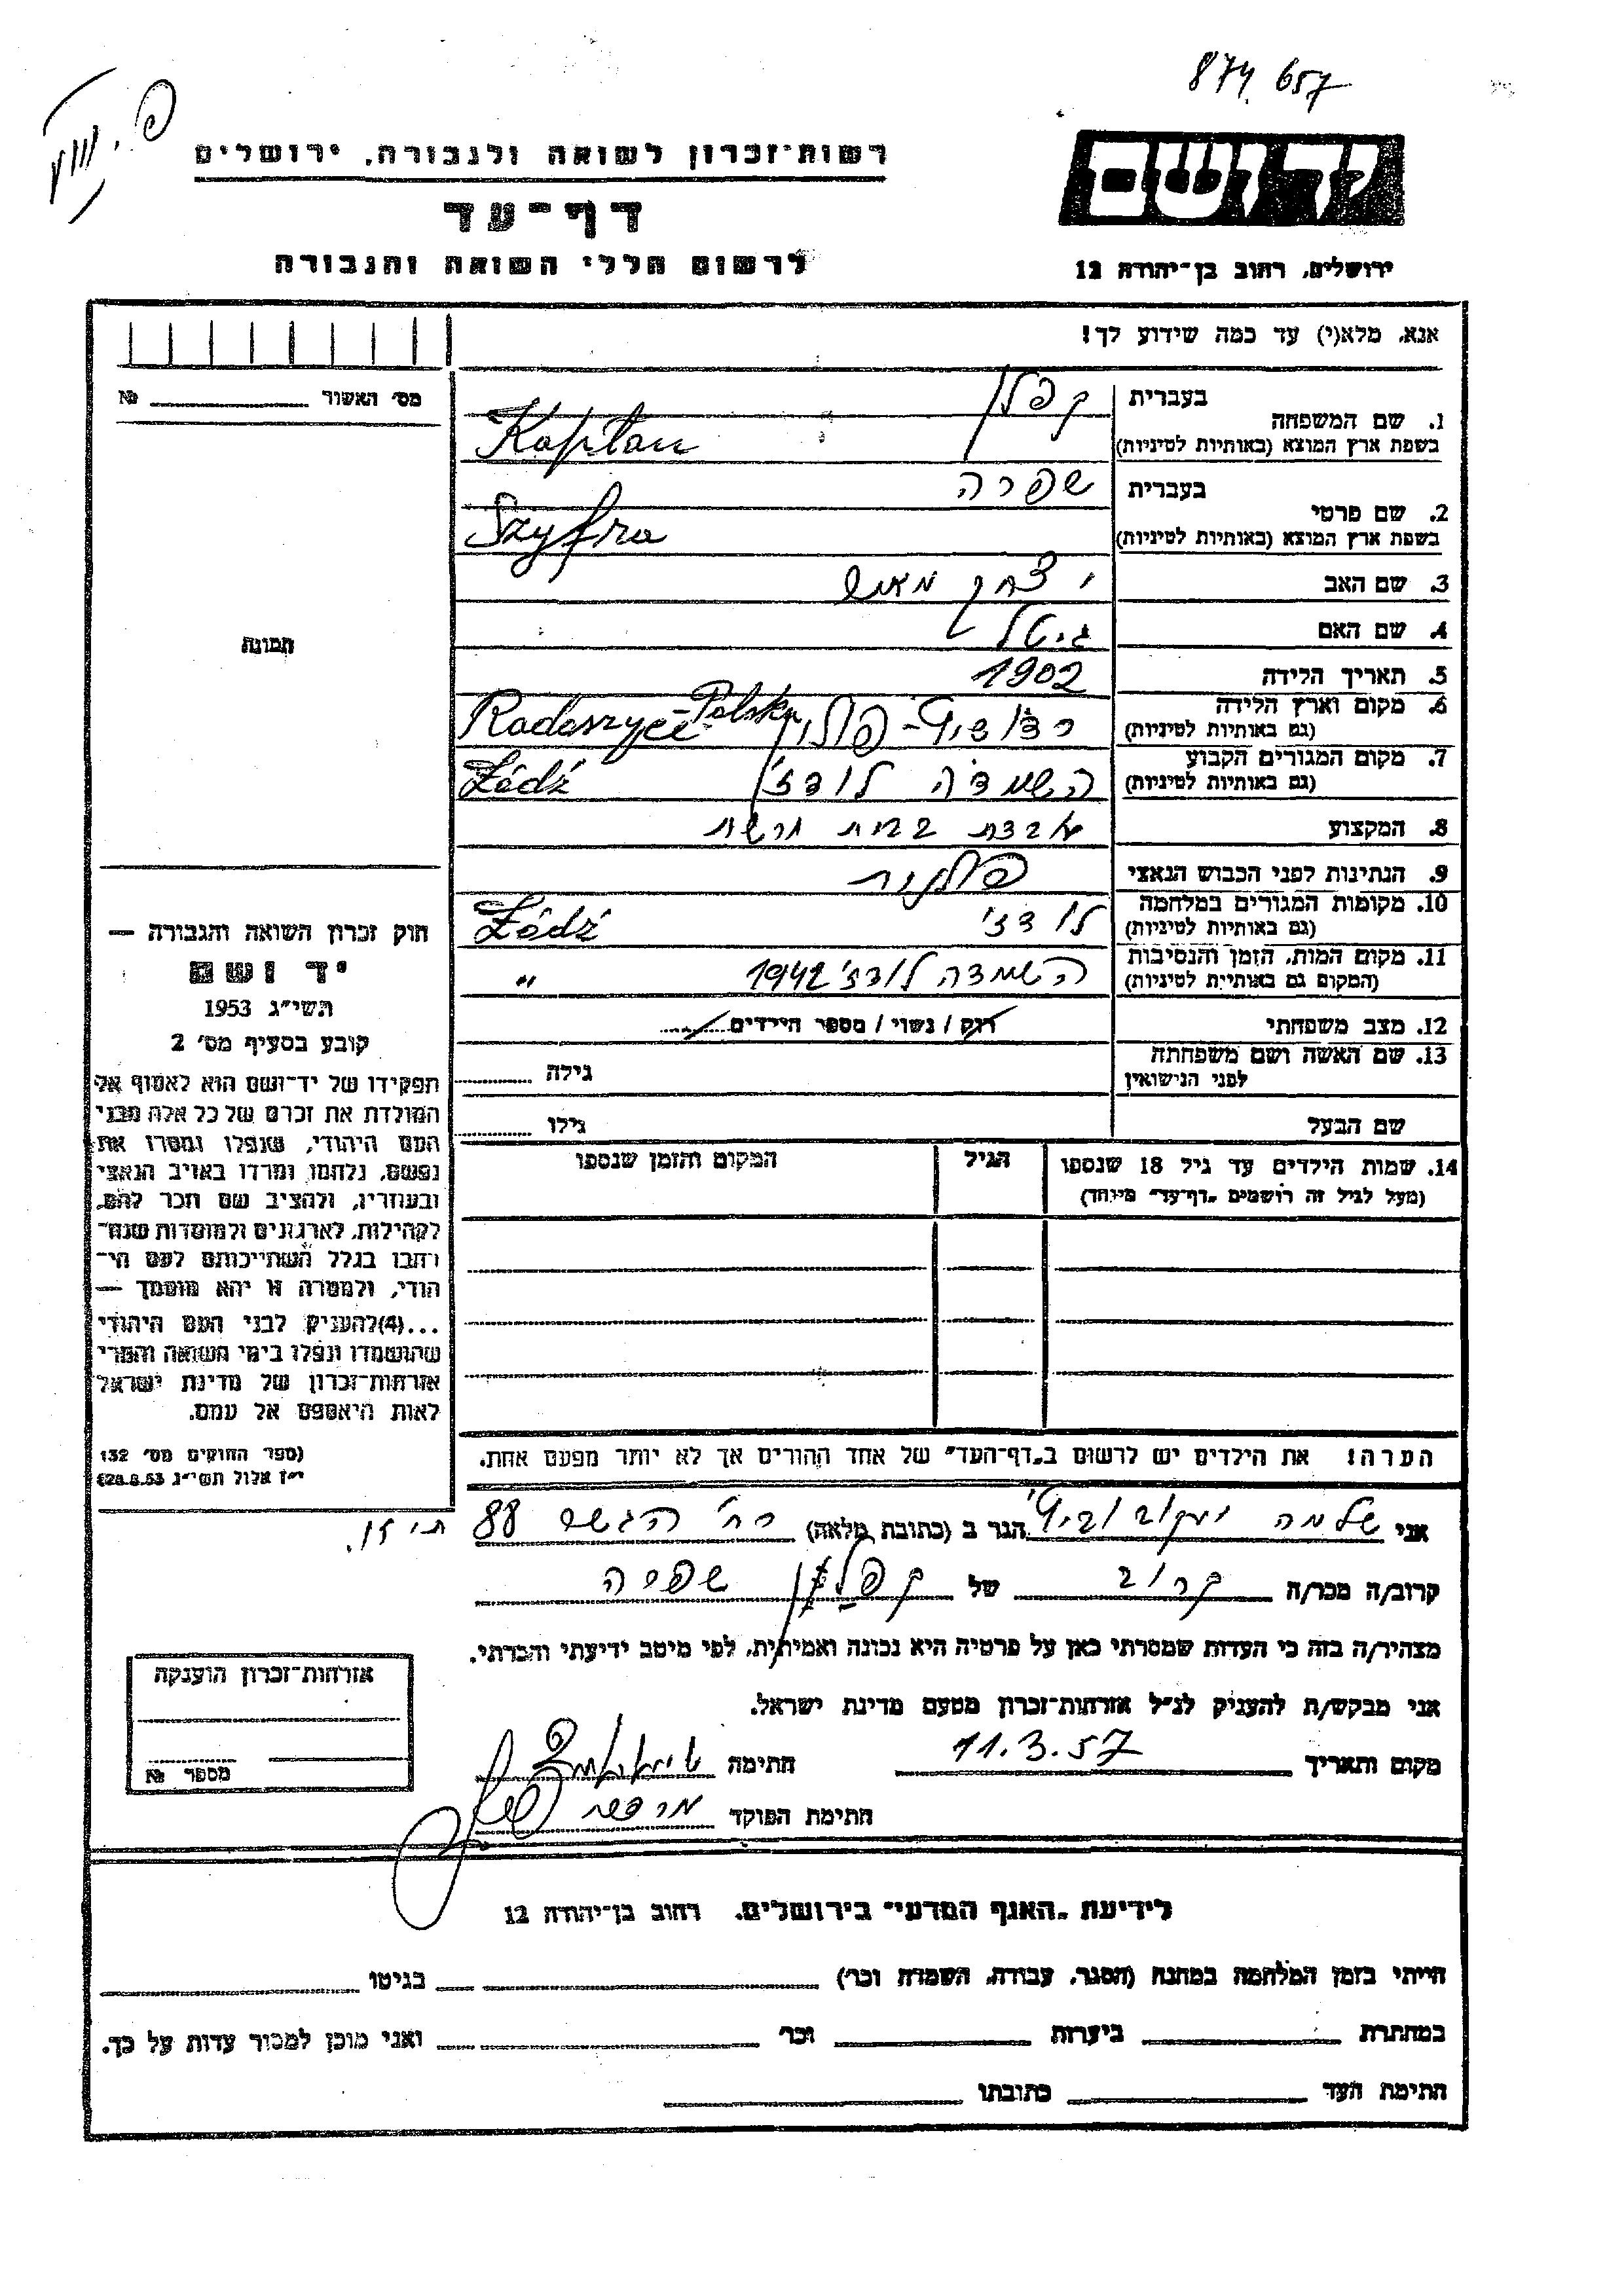 874.657
רשות־זכרון לשואה ולגבורה. ירושלים
יד ושם
דף־עד
לרשום חללי השואה והגבורה
ירושלים. רחוב בן־יהודה 12
אנא, מלא(י) עד כמה שידוע לך!
מס׳ האשור №
תמונה
1. שם המשפחה
בעברית קפלן
בשפת ארץ המוצא (באותיות לטיניות) Kaplan
2. שם פרטי
בעברית שפרה
בשפת ארץ המוצא (באותיות לטיניות) Szyfra
3. שם האב יצחק
4. שם האם גיטל
5. תאריך הלידה 1902
6. מקום וארץ הלידה
(גם באותיות לטיניות) פולין Radoszyce - Polska
7. מקום המגורים הקבוע
(גם באותיות לטיניות) לודז׳ Łódź
8. המקצוע
9. הנתינות לפני הכבוש הנאצי פולנית
10. מקומות המגורים במלחמה
(גם באותיות לטיניות) לודז׳ Łódź
11. מקום המות, הזמן והנסיבות
(המקום גם באותיות לטיניות) השמדה לודז׳ 1942 "
12. מצב משפחתי רוק / נשוי / מספר הילדים
13. שם האשה ושם משפחתה
לפני הנישואין גילה
שם הבעל גילו
14. שמות הילדים עד גיל 18 שנספו הגיל המקום והזמן שנספו
(מעל לגיל זה רושמים „דף־עד״ מיוחד)
הערה! את הילדים יש לרשום ב„דף־העד״ של אחד ההורים אך לא יותר מפעם אחת.
חוק זכרון השואה והגבורה —
יד ושם
תשי״ג 1953
קובע בסעיף מס׳ 2
תפקידו של יד־ושם הוא לאסוף אל
המולדת את זכרם של כל אלה מבני
העם היהודי, שנפלו ומסרו את
נפשם, נלחמו ומרדו באויב הנאצי
ובעוזריו, ולהציב שם וזכר להם,
לקהילות, לארגונים ולמוסדות שנח־
רבו בגלל השתייכותם לעם הי־
הודי, ולמטרה זו יהא מוסמך —
...(4)להעניק לבני העם היהודי
שהושמדו ונפלו בימי השואה והמרי
אזרחות־זכרון של מדינת ישראל
לאות היאספם אל עמם.
(ספר החוקים מס׳ 132
י״ז אלול תשי״ג 28.8.53)
אני שלמה הגר ב (כתובת מלאה) רח׳ 88
קרוב/ה מכר/ה קרוב של קפלן שפרה
מצהיר/ה בזה כי העדות שמסרתי כאן על פרטיה היא נכונה ואמיתית, לפי מיטב ידיעתי והכרתי.
אני מבקש/ת להעניק לנ״ל אזרחות־זכרון מטעם מדינת ישראל.
מקום ותאריך 11.3.57 חתימה
חתימת הפוקד
אזרחות־זכרון הוענקה
מספר №
לידיעת „האגף המדעי״ בירושלים. רחוב בן־יהודה 12
הייתי בזמן המלחמה במחנה (הסגר, עבודה, השמדה וכר׳) בגיטו
במחתרת ביערות וכר׳ ואני מוכן למסור עדות על כך.
חתימת העד כתובתו